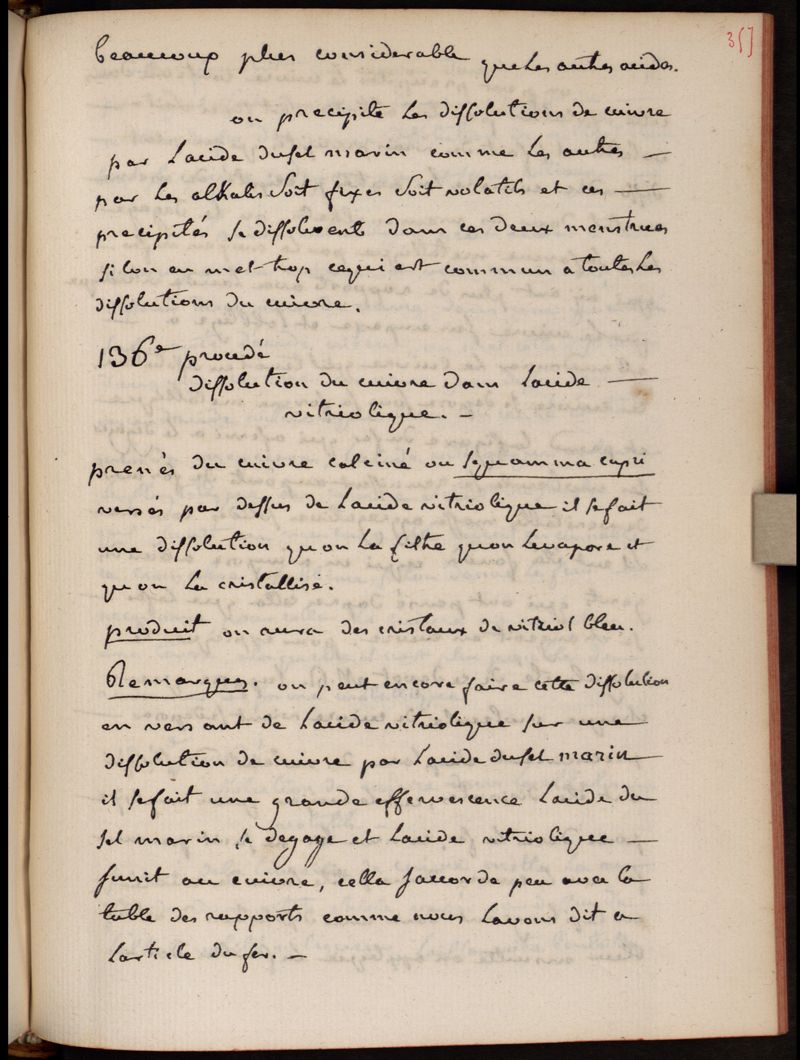 357
beaucoup plus considerable que Les autres acides.
on precipite Les dissolutions de cuivre
par Lacide dusel marin comme Les autres —
par Les alKalis Soit fixes Soit volatils et ces —
precipités se dissolvent dans ces deux menstrues
si lon en met trop cequi est commun a toutes Les
dissolutions du cuivre.
136e procedé
dissolution du cuivre dans Lacide —
vitriolique. —
prenés du cuivre calciné ou squamma cupri
versés par dessus de Lacide vitriolique il se fait
une dissolution quon La filtre quon Levapore et
quon La cristallise.
produit on aura des cristaux de vitriol bleu.
Remarques. on peut encore faire cette dissolution
en versant de Lacide vitriolique sur une
dissolution de cuivre par Lacide dusel marin
il sefait une grande effervescence Lacide du
sel marin se degage et Lacide vitriolique —
sunit au cuivre, cella saccorde peu avec la
table des rapports comme nous Lavons dit a
Larticle du fer. —